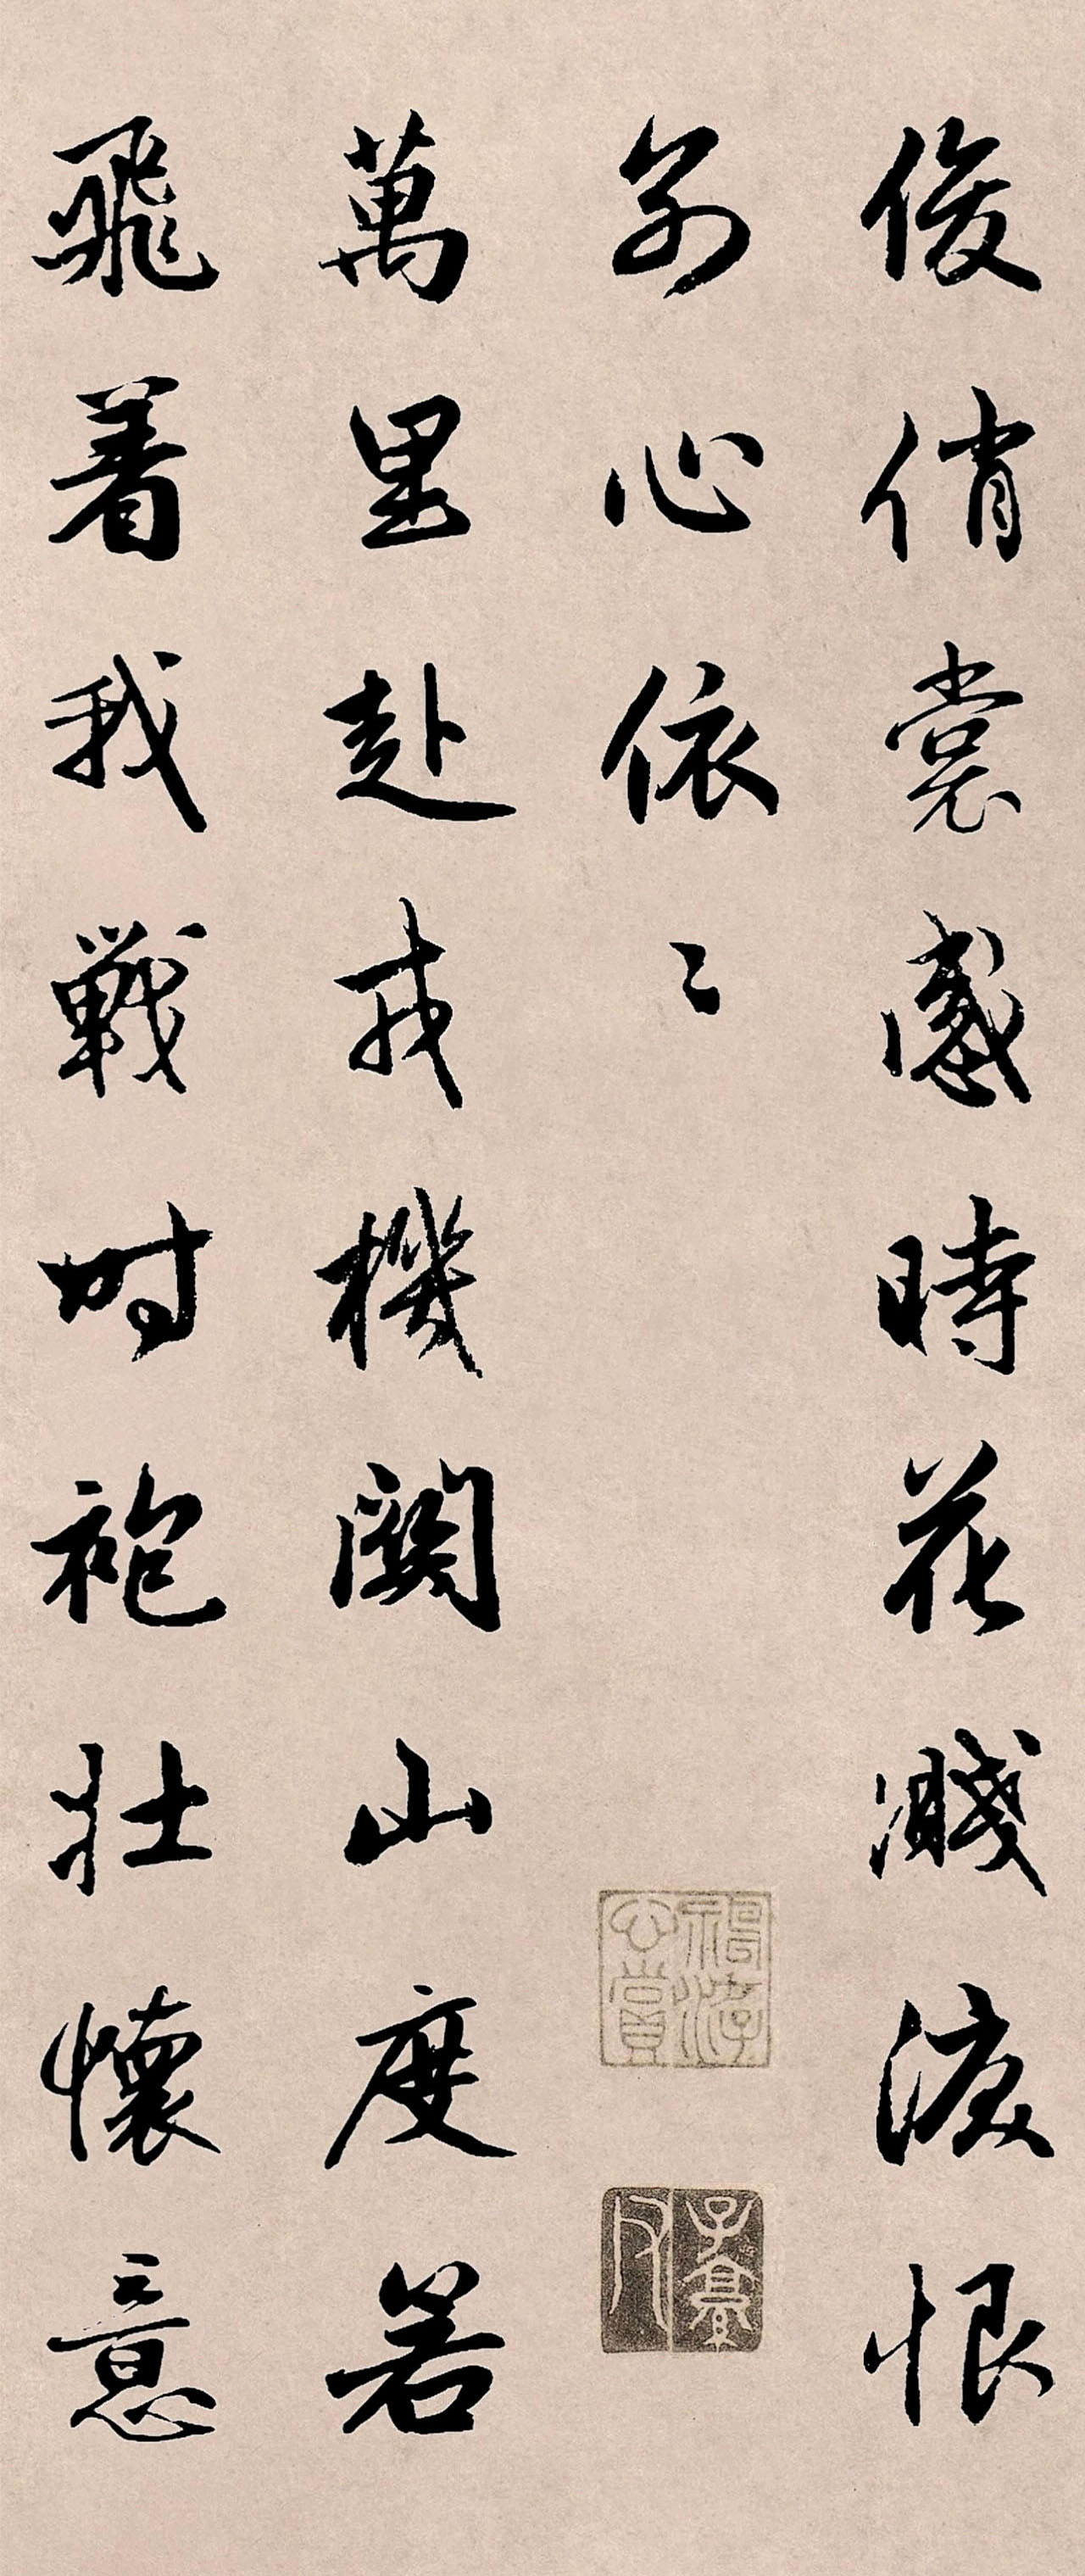 俊俏裳感時花濺淚恨
別心依〻
萬里赴戎機關山度若
飛着我戰時袍壯懷意